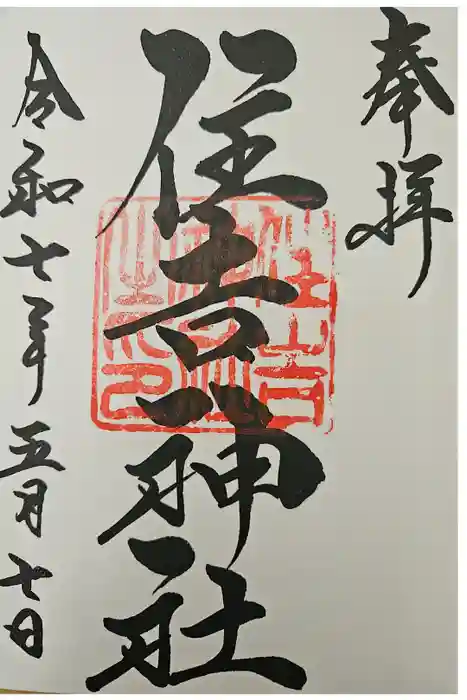 奉拝
住吉神社
令和七年五月七日